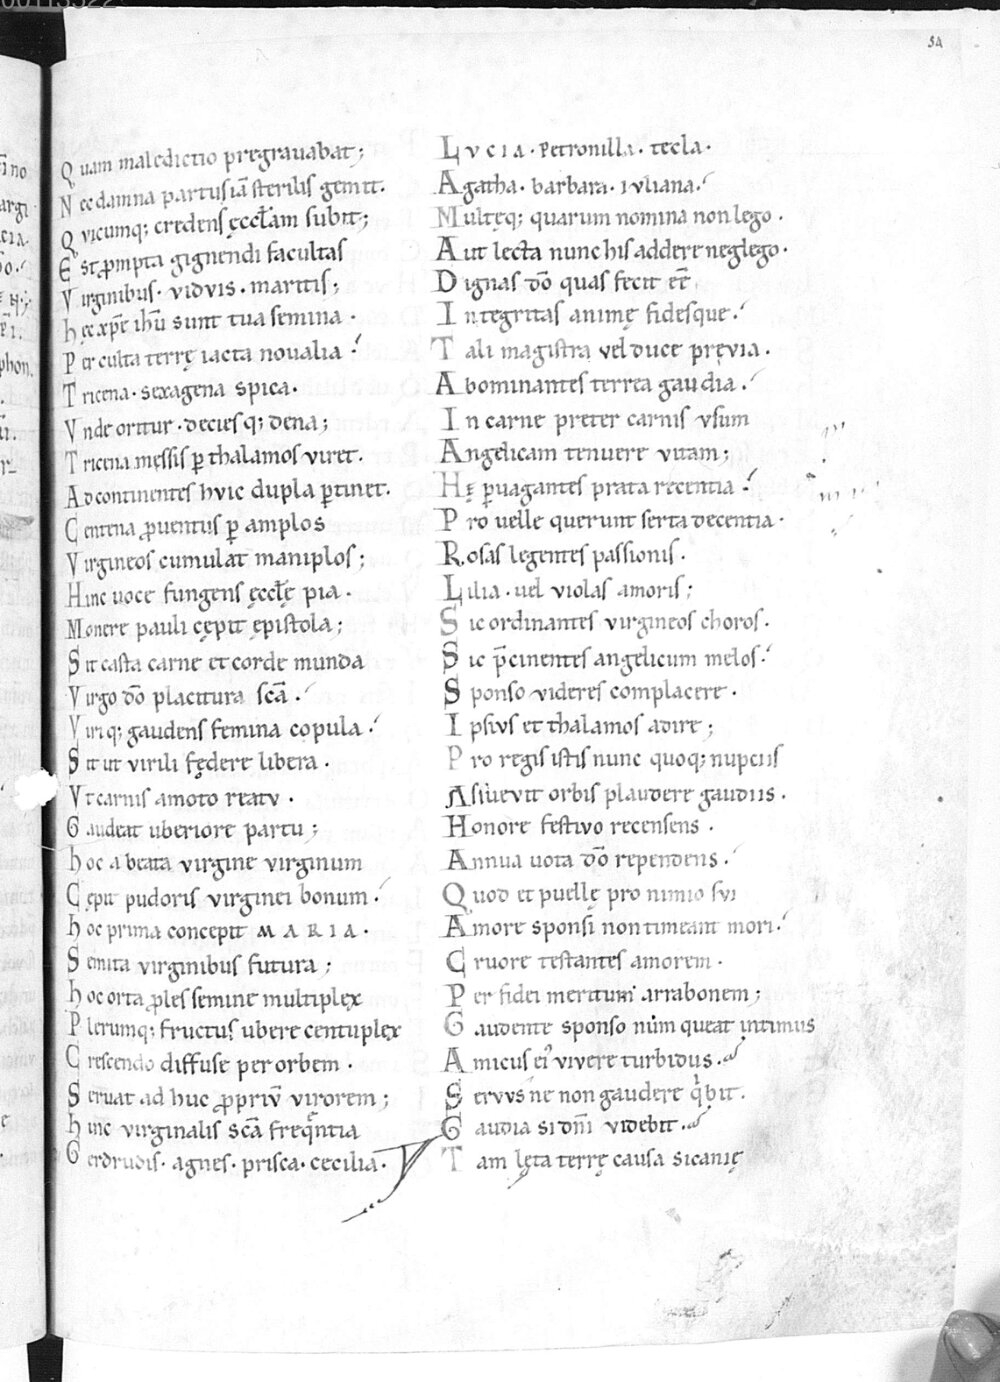 54
Quam maledictio pregrauabat;
Nec damna partus iā sterilis gemit.
Quicumq; credens ęcctam subit;
Est ꝓmpta gignendi facultas
Virginibus. vidvis. maritis;
hec xp̄e ih̄u sunt tua semina.
Per culta terrę iacta noualia.
Tricena. sexagena spica.
Vnde oritur. decies q; dena;
Tricena męssis ꝑ thalamos viret.
Ad continentes hvic dupla ꝑtinet.
Centena ꝓuentus ꝑ amplos
Virgineos cumulat maniplos;
Hinc uoce fungens ęcctę pia.
Monere pauli cępit epistola;
Sit casta carne et corde munda
Virgo dō placitura scā.
Viriq; gaudens femina copula.
Sit ut virili fędere libera.
Vt carnis amoto reatv.
Gaudeat uberiore partu;
hoc a beata virgine virginum
Cępit pudoris virginei bonum.
hoc prima concepit MARIA.
Semita virginibus futura;
hoc orta ꝓles semine multiplex
Plerumq; fructus ubere centuplex
Crescendo diffuse per orbem.
Seruat ad huc ꝓpriv̄ virorem;
hinc virginalis scā freqntia
Gerdrudis. agnes. prisca. cecilia.
Lvcia. petronilla. tecla.
Agatha. barbara. ivliana.
Multęq; quarum nomina non lego.
Aut lecta nunc his addere neglego.
Dignas dō quas fecit eē
Integritas animę fidesque.
Tali magistra vel duce pręvia.
Abominantes terrea gaudia.
In carne preter carnis vsum
Angelicam tenuere vitam;
Hę ꝑuagantes prata recentia.
Pro uelle querunt serta decentia.
Rosas legentes passionis.
Lilia. uel violas amoris;
Sic ordinantes virgineos choros.
Sic p̄cinentes angelicum melos.
Sponso videres complacere.
Ipsivs et thalamos adire;
Pro regis istis nunc quoq; nupciis
Assvevit orbis plaudere gaudiis.
Honore festivo recensens.
Annua uota dō rependens.
Quod et puellę pro nimio svi
Amore sponsi non timeant mori.
Cruore testantes amorem.
Per fidei meritum arrabonem;
Gaudente sponso num queat intimus
Amicus ei vivere turbidus.
Servvs ne non gaudere q̇bit.
Gaudia si dn̄i videbit.
Tam lęta terrę causa sicanię